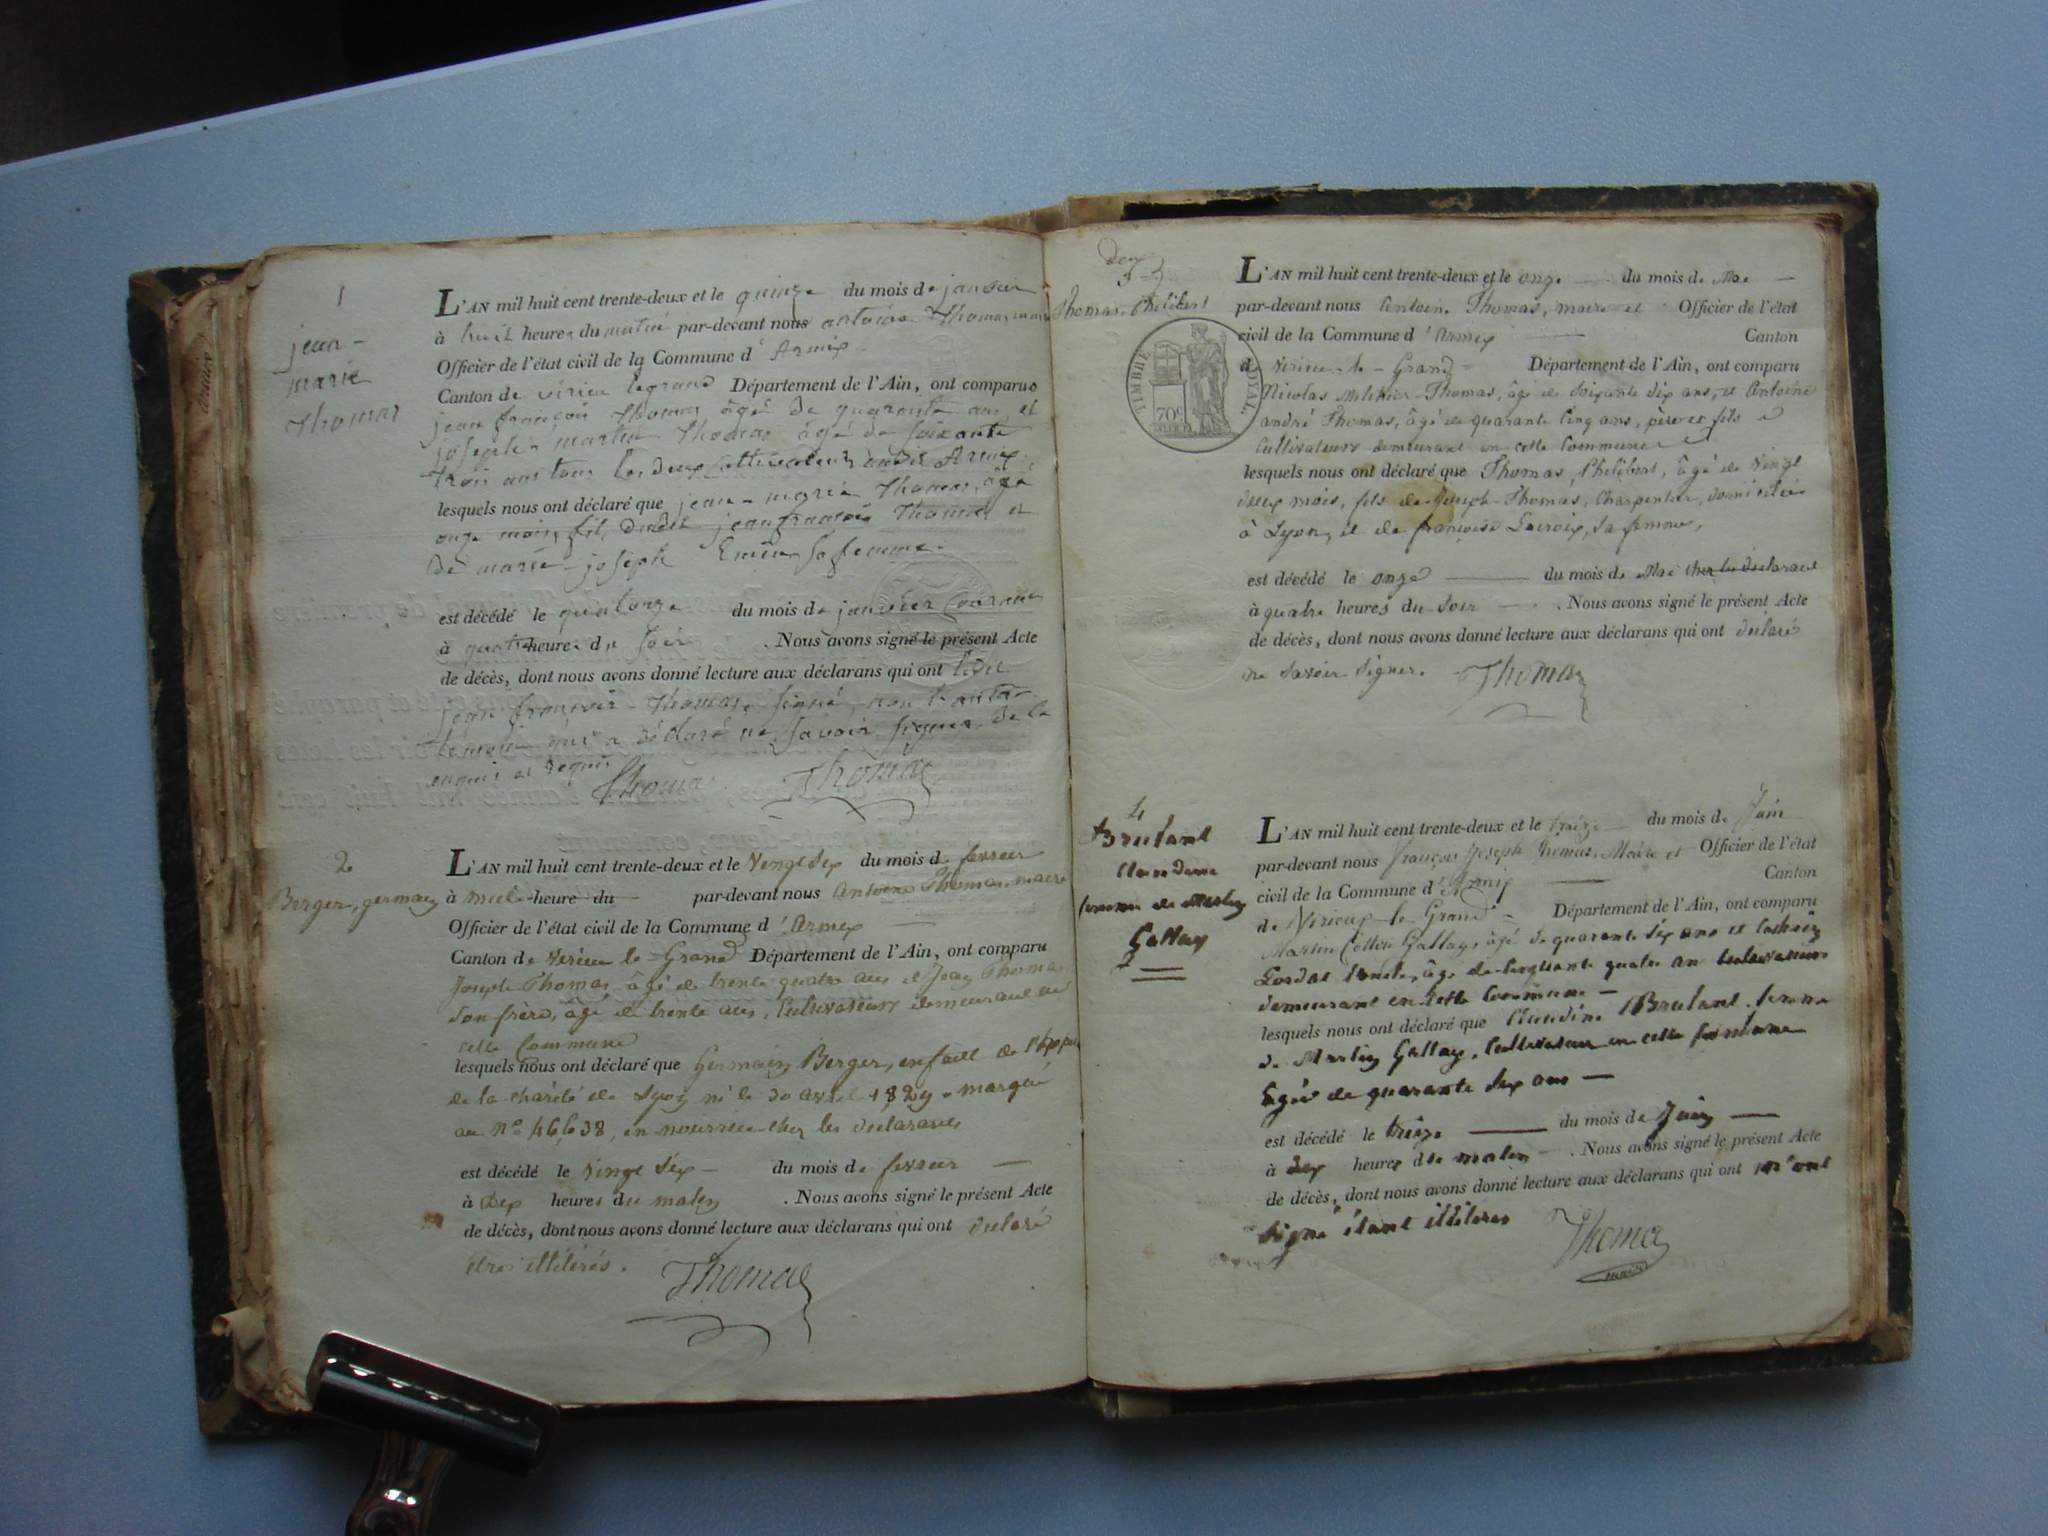 1
jean-
marie
Thomas
L'AN mil huit cent trente-deux et le quinze du mois de janvier
à huit heures du matin par-devant nous antoine Thomas maire
Officier de l'état civil de la Commune d'Armix
Canton de virieu legrand Département de l'Ain, ont comparus
jean françois Thomas âgé de quarante ans et
joseph-martin Thomas âgé de soixante
trois ans tous les deux cultivateurs audit Armix
lesquels nous ont déclaré que jean-marie Thomas, âgé
onze mois, fils dudit jean françois Thomas et
de marie-joseph sa femme.
est décédé le quatorze du mois de janvier courant
à quatre heures du soir . Nous avons signé le présent Acte
de décès, dont nous avons donné lecture aux déclarans qui ont ledit
jean françois Thomas, signé, non l'autre
témoin qui a déclaré ne savoir signer de ce
enquis et requis
Thomas Thomas
2
Berger, germain
L'AN mil huit cent trente-deux et le Vingt Six du mois de fevrier
à midi heure du par-devant nous Antoine Thomas, maire
Officier de l'état civil de la Commune d'Armix
Canton de Virieu le-Grand Département de l'Ain, ont comparu
Joseph Thomas, âgé de trente quatre ans et Jean Thomas
son frère, âgé de trente ans, Cultivateurs demeurant en
cette Commune
lesquels nous ont déclaré que Germain Berger, enfant de l'hopital
de la charité de Lyon né le 30 avril 1829, marqué
au n° 46,638, en nourrice chez les déclarants
est décédé le Vingt Six - du mois de fevrier —
à Dix heures du matin . Nous avons signé le présent Acte
de décès, dont nous avons donné lecture aux déclarans qui ont declaré
être illitérés.
Thomas
3
Thomas, Philibert
TIMBRE ROYAL.
70c
L'AN mil huit cent trente-deux et le onze du mois de Mai —
par-devant nous Antoine Thomas, maire et Officier de l'état
civil de la Commune d'Armix Canton
d Virieu-le-Grand = Département de l'Ain, ont comparu
Nicolas Melchior Thomas, âgé de soixante dix ans, et Antoine
andré Thomas, âgé de quarante cinq ans, père et fils
Cultivateurs demeurant en cette Commune
lesquels nous ont déclaré que Thomas, Philibert, âgé de Vingt
deux mois, fils de Joseph-Thomas, charpentier, domicilié
à Lyon, et de françoise Lacroix, sa femme,
est décédé le onze — du mois de Mai chez les déclarans
à quatre heures du Soir — . Nous avons signé le présent Acte
de décès, dont nous avons donné lecture aux déclarans qui ont déclaré
ne Savoir Signer. Thomas
4
Brulant
Claudine
femme de Martin
Gallay
L'AN mil huit cent trente-deux et le treize du mois de Juin
par-devant nous françois Joseph Thomas, Maire et Officier de l'état
civil de la Commune d'Armix — Canton
de Virieux-le-Grand = Département de l'Ain, ont comparu
Martin Gallay, âgé de quarante six ans et
âgé de cinquante quatre ans cultivateurs
demeurant en cette Commune —
lesquels nous ont déclaré que Claudine Brulant, femme
de Martin Gallay, Cultivateur en cette Commune
Agée de quarante six ans —
est décédé le treize — du mois de Juin —
à dix heures du matin - . Nous avons signé le présent Acte
de décès, dont nous avons donné lecture aux déclarans qui ont n'ont
signé étant illitérés
Thomas
maire